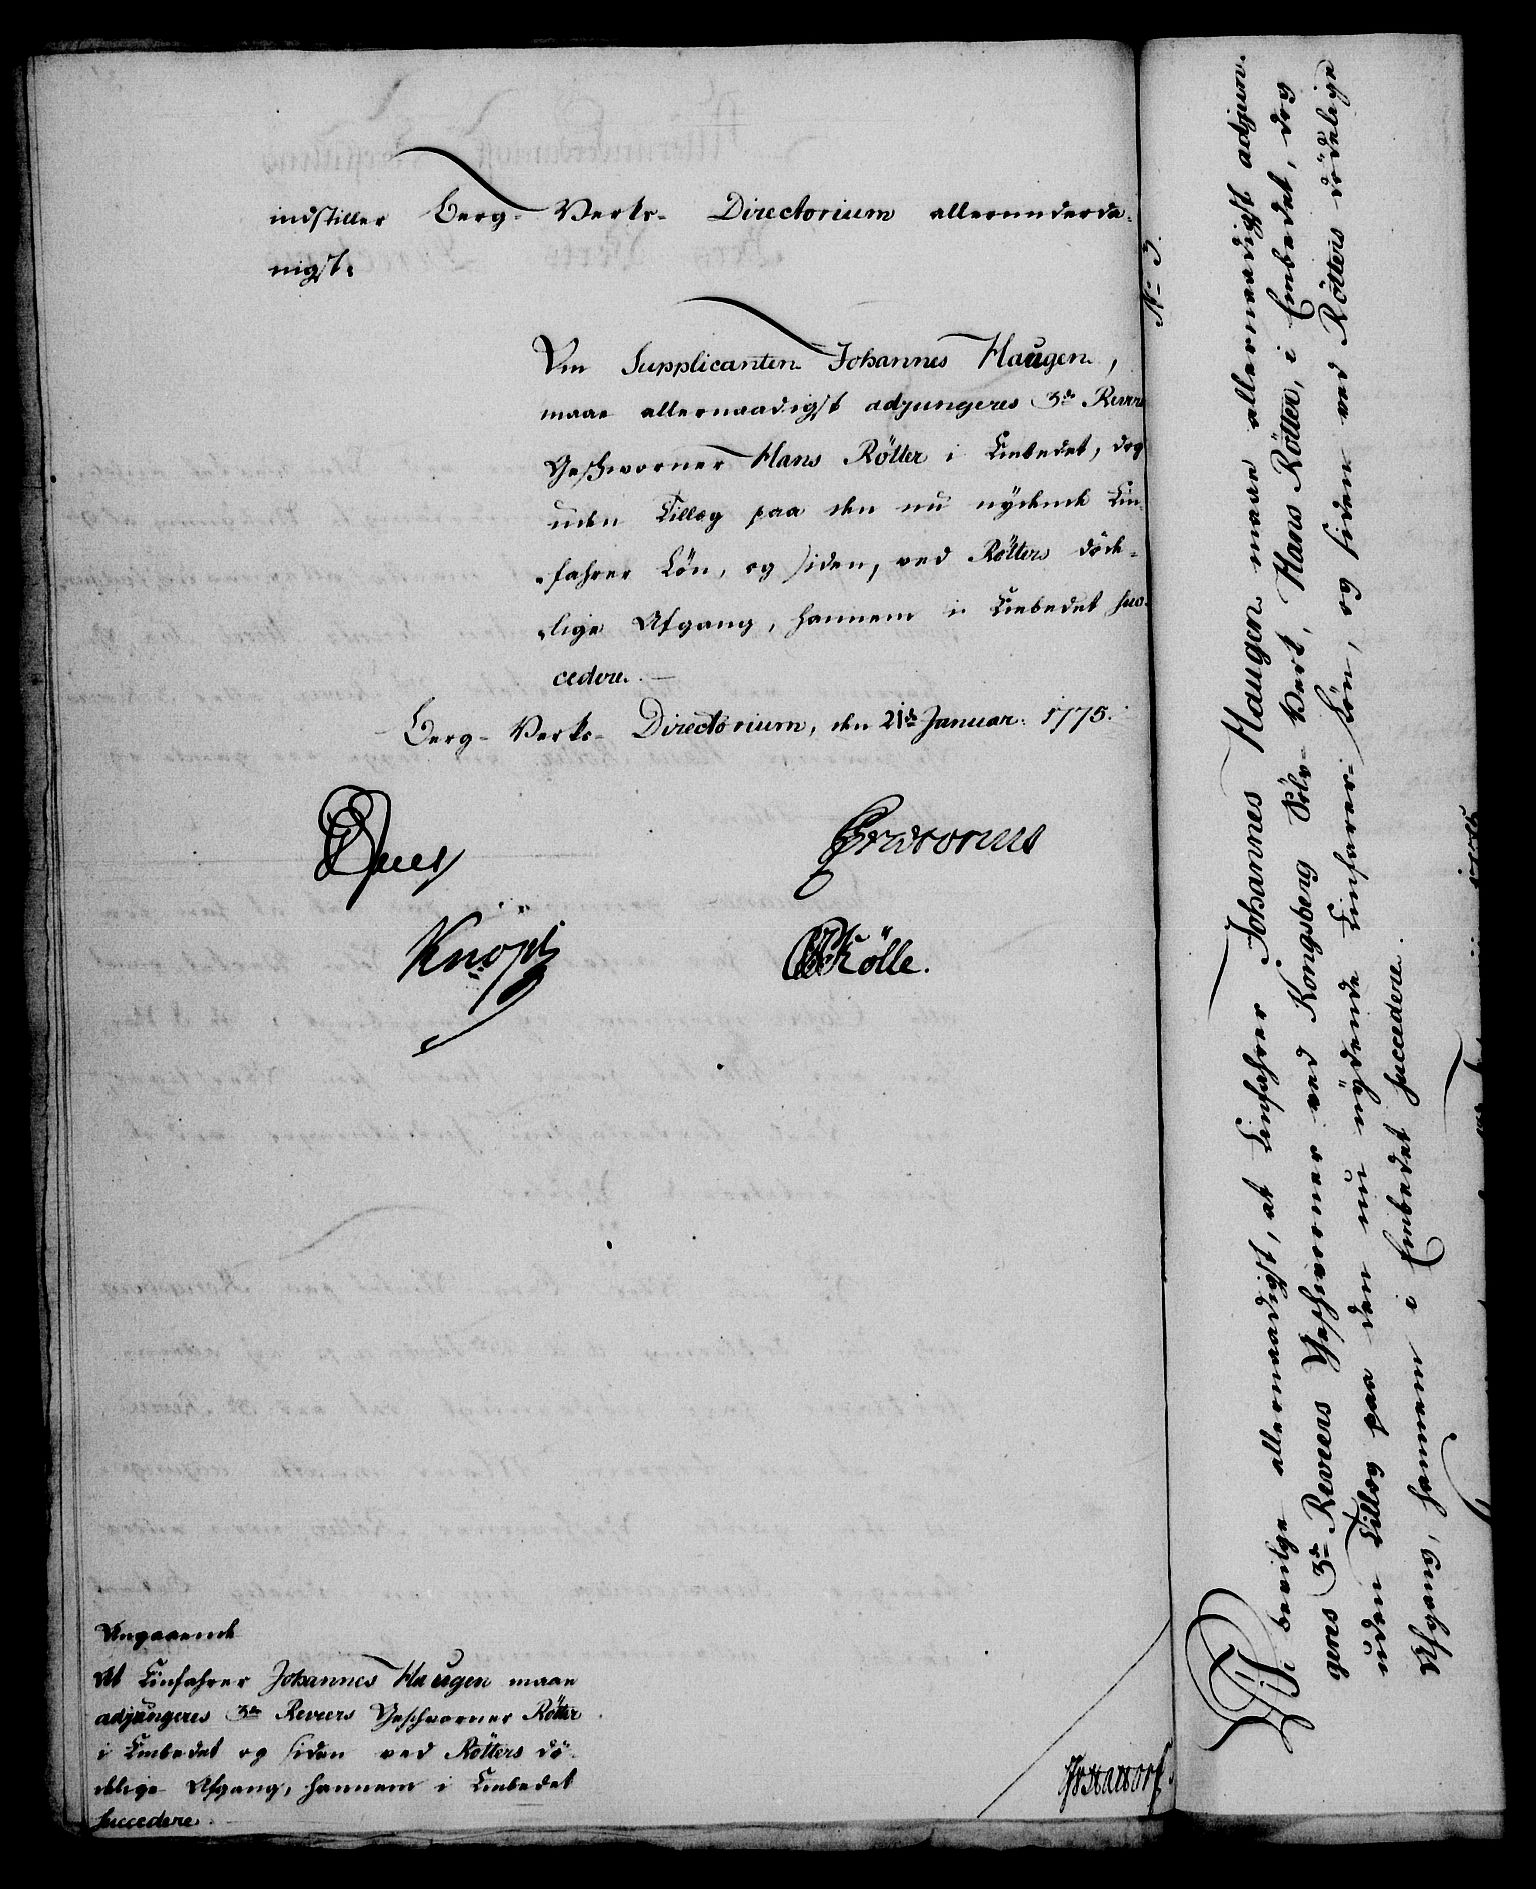 indstiller Berg-Verks-Directorium allerunderda-
nigst.
Om Supplicanten Johannes Haugen,
maae allernaadigst adjungeres 3de Reviers
Geschworner Hans Rötter i Embedet, dog
uden Tillæg paa den nu nydende Ein-
fahrer Lön, og siden, ved Rötters döde-
lige Afgang, hannem i Embedet suc-
cedere.
Berg-Verks-Directorium, den 21de Januar. 1775.
Prætorius
Knopf
Kölle.
Angaaende
At Einfahrer Johannes Haugen maae
adjungeres 3de Reviers Geschworner Rötter
i Embedet og siden ved Rötters dö-
delige Afgang, hannem i Embedet
succedere.
No 3.
Vi bevilge allernaadigst, at Einfahrer Johannes Haugen maae allernaadigst adjun-
geres 3de Reviers Geschworner ved Kongsberg Sölv-Verk, Hans Rötter, i Embedet, dog
uden Tillæg paa den nu nydende Einfarer-Lön, og siden ved Rötters dödelige
Afgang, hannem i Embedet succedere.